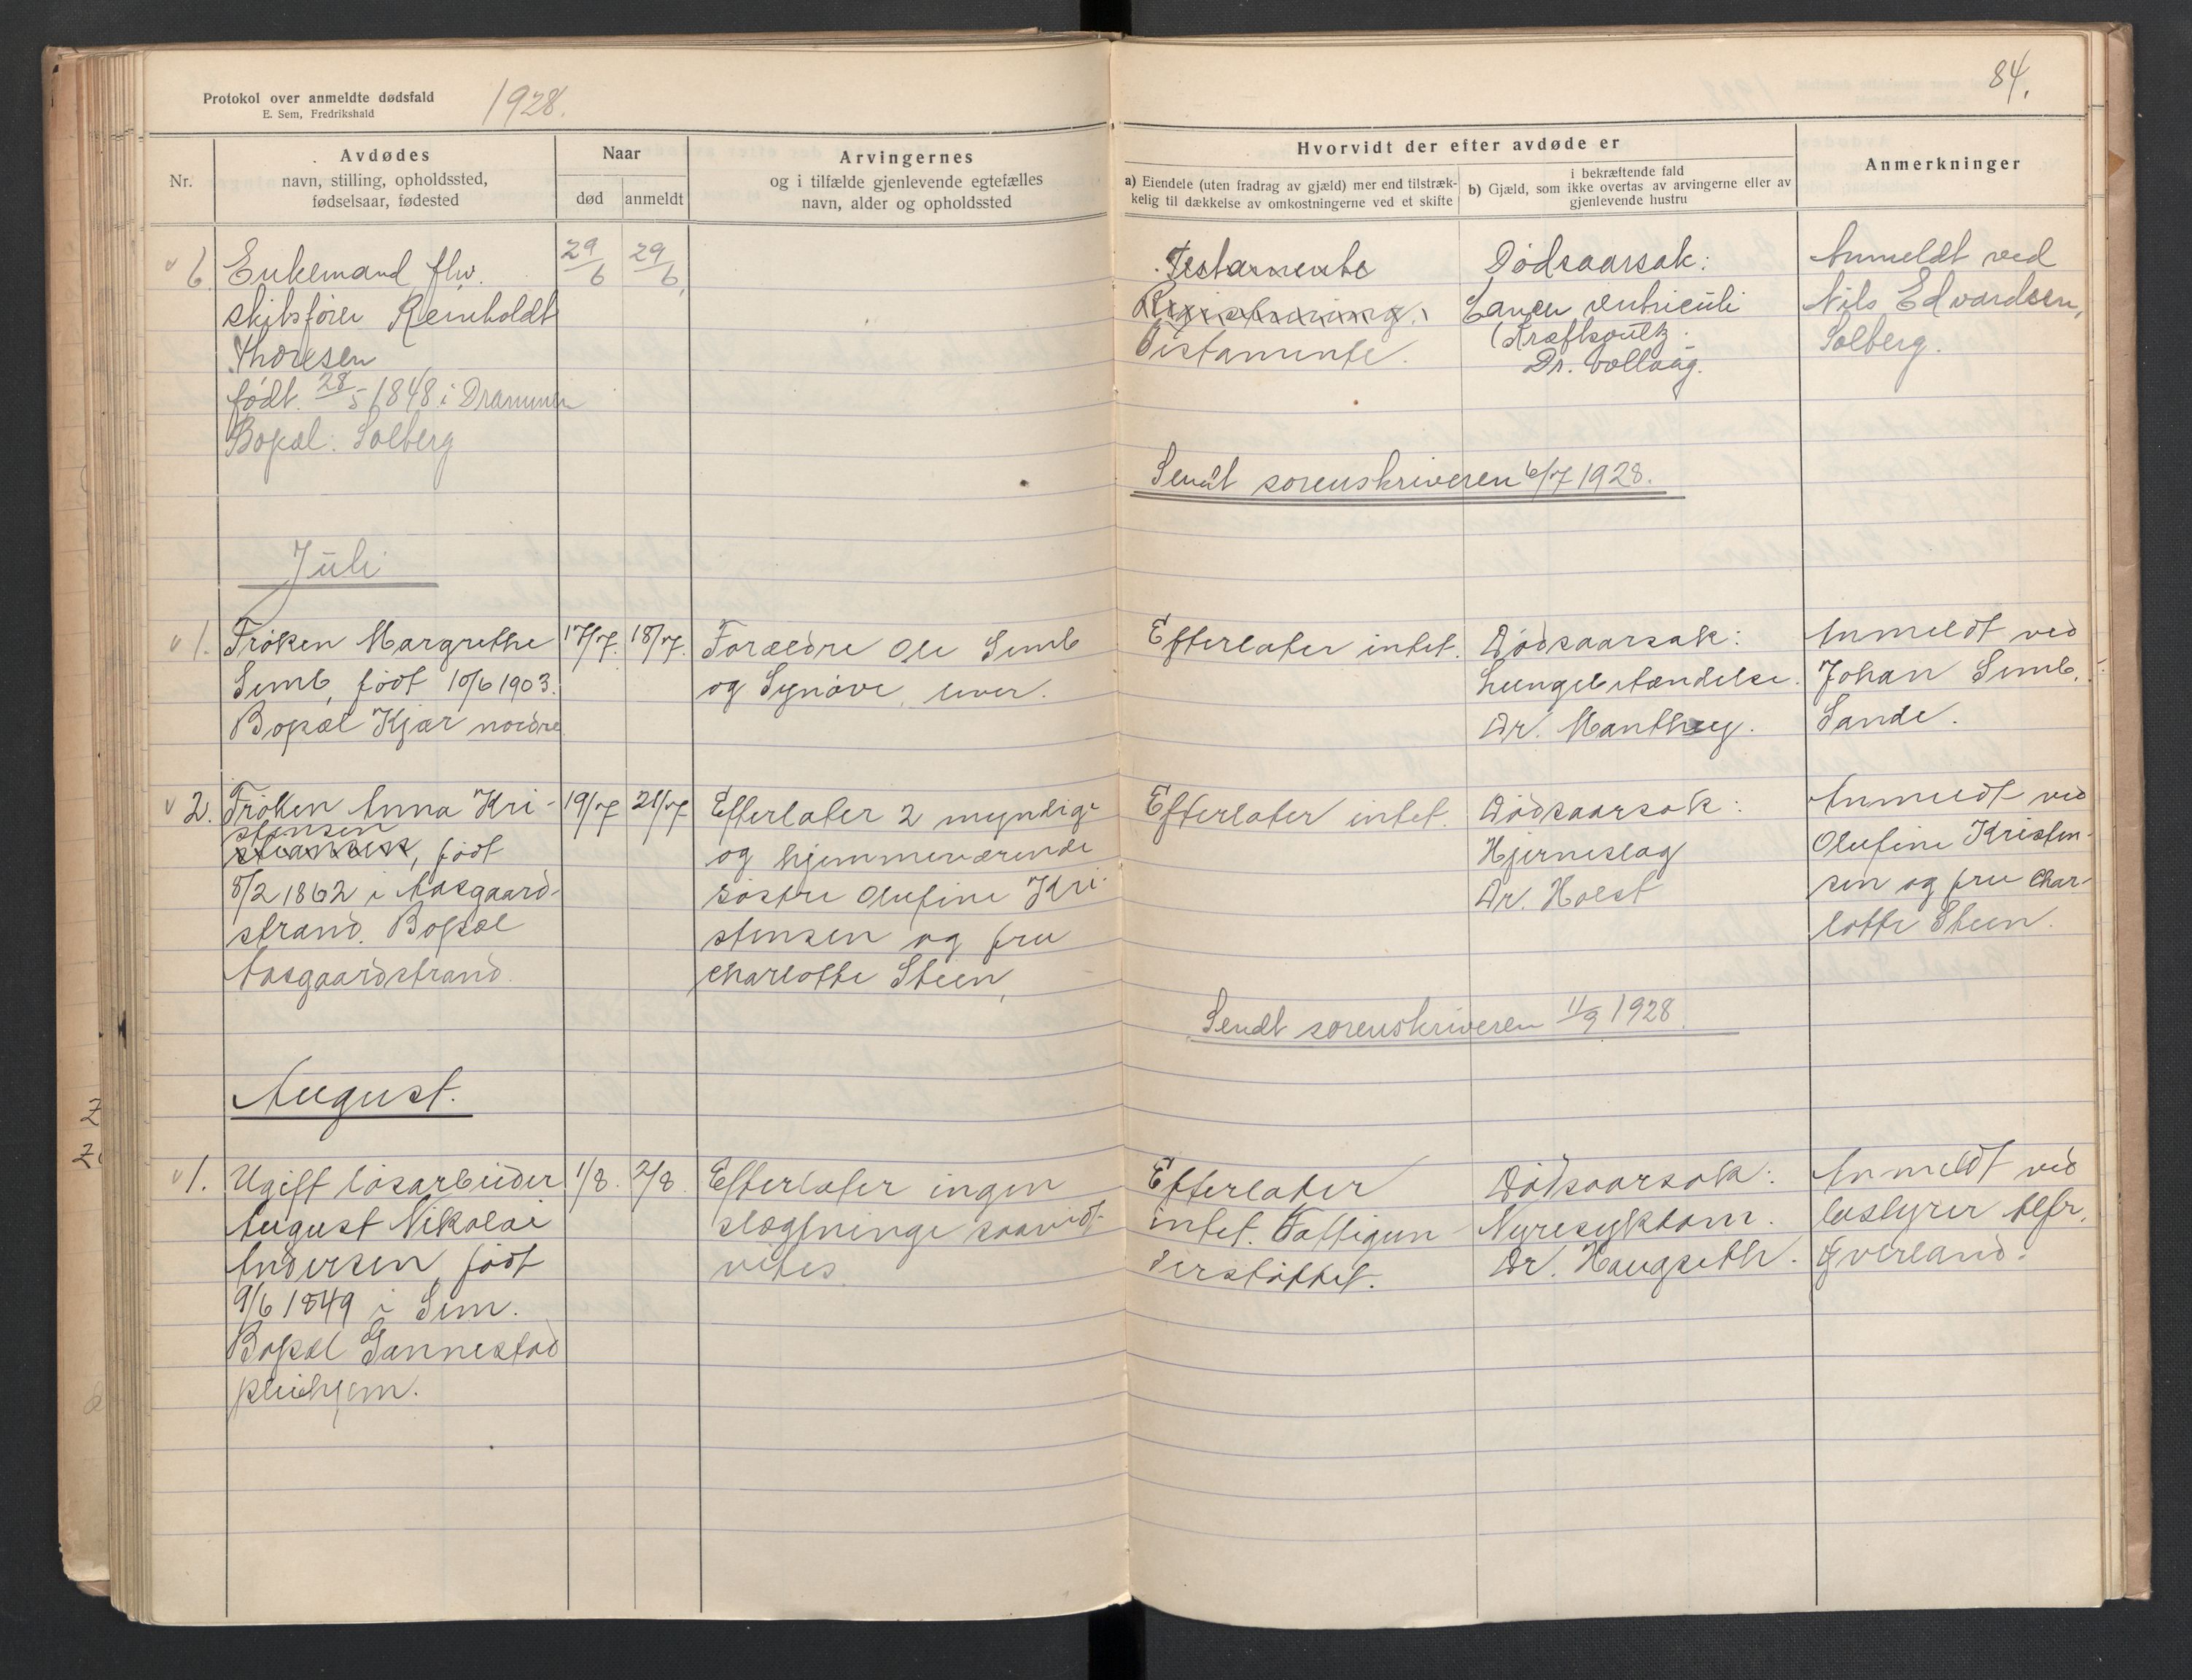 Protokol over anmeldte dødsfald
E. Sem, Fredrikshald
1928.
84.
Nr.
Avdødes
navn, stilling, opholdssted,
fødselsaar, fødested
Naar
død
anmeldt
Arvingernes
og i tilfælde gjenlevende egtefælles
navn, alder og opholdssted
Hvorvidt der efter avdøde er
a) Eiendele (uten fradrag av gjæld) mer end tilstræk-
kelig til dækkelse av omkostningerne ved et skifte
i bekræftende fald
b) Gjæld, som ikke overtas av arvingerne eller av
gjenlevende hustru
Anmerkninger
v 6.
Enkemand, fhv.
skibsfører Reinholdt
Thoresen
født 28/5 1848 i Drammen
Bopæl: Solberg
29/6
29/6.
Testamente
Testamente.
Dødsaarsak:
Cancer ventriculi
(Kræftsvulst)
Dr. Vollaug.
Anmeldt ved
Nils Edvardsen,
Solberg.
Sendt sorenskriveren 6/7 1928.
Juli
v 1.
Frøken Margrethe
Semb, født 10/6 1903.
Bopæl Kjær nordre
17/7.
18/7.
Forældre Ole Semb
og Synøve, lever.
Efterlater intet.
Dødsaarsak:
Lungebetændelse.
Dr. Manthey.
Anmeldt ved
Johan Semb,
Sande.
v 2.
Frøken Anna Kri-
stensen
stiansen, født
8/2 1862 i Aasgaard-
strand. Bopæl
Aasgaardstrand.
19/7
21/7
Efterlater 2 myndige
og hjemmeværende
søstre Olufine Kri-
stensen og fru
Charlotte Steen,
Efterlater intet.
Dødsaarsak:
Hjerneslag
Dr. Holst
Anmeldt ved
Olufine Kristen-
sen og fru Char-
lotte Steen.
Sendt sorenskriveren 11/9 1928.
August.
v 1.
Ugift løsarbeider
August Nikolai
Andersen, født
9/6 1849 i Sem.
Bopæl Gannestad
pleiehjem.
1/8.
2/8.
Efterlater ingen
slegtninge saavidt
vites.
Efterlater
intet. Fattigun-
derstøttet.
Dødsaarsak:
Nyresykdom.
Dr. Haugseth.
Anmeldt ved
bestyrer Alfr.
Øverland.